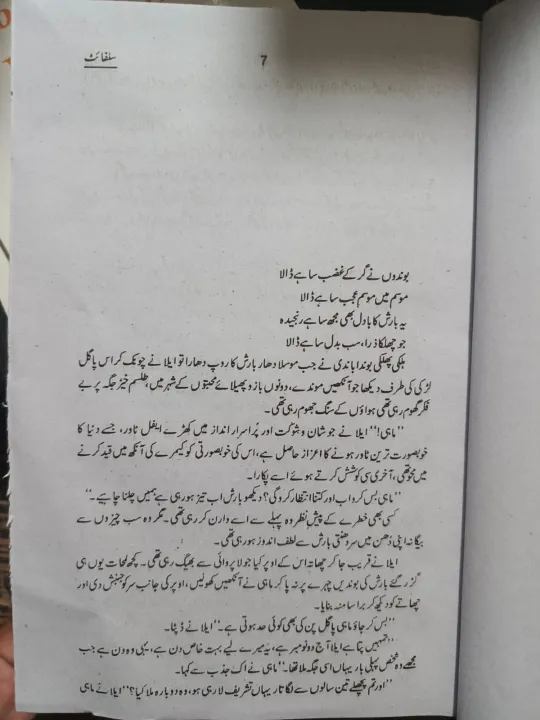 7
سلفائٹ
بوندوں نے گر کے غضب سا ہے ڈالا
موسم میں موسم عجب سا ہے ڈالا
یہ بارش کا بادل بھی مجھ سا ہے رنجیدہ
جو چھلکا ذرا، سب بدل سا ہے ڈالا
ہلکی پھلکی بوندا باندی نے جب موسلا دھار بارش کا روپ دھارا تو ایلا نے چونک کر اس پاگل
لڑکی کی طرف دیکھا جو آنکھیں موندے، دونوں بازو پھیلائے محبتوں کے شہر میں، طلسم خیز جگہ پر بے
فکر گھوم رہی تھی ہواؤں کے سنگ جھوم رہی تھی۔
”ماہی!“ ایلا نے جو شان و شوکت اور پُراسرار انداز میں کھڑے ایفل ٹاور، جسے دنیا کا
خوبصورت ترین ٹاور ہونے کا اعزاز حاصل ہے، اس کی خوبصورتی کو کیمرے کی آنکھ میں قید کرنے
میں محو تھی، آخری سی کوشش کرتے ہوئے اسے پکارا۔
”ماہی بس کرو اب اور کتنا انتظار کرو گی؟ دیکھو بارش اب تیز ہو رہی ہے ہمیں چلنا چاہیے۔“
کسی بھی خطرے کے پیشِ نظر وہ پہلے سے اسے وارن کر رہی تھی۔ مگر وہ سب چیزوں سے
بیگانہ اپنی دُھن میں سر دھنتی بارش سے لطف اندوز ہو رہی تھی۔
ایلا نے قریب جا کر چھاتہ اس کے اوپر کیا جو لاپروائی سے بھیگ رہی تھی۔ کچھ لمحات یوں ہی
گزر گئے بارش کی بوندیں چہرے پر نہ پا کر ماہی نے آنکھیں کھولیں، اوپر کی جانب سر کو جنبش دی اور
چھاتے کو دیکھ کر برا سا منہ بنایا۔
”بس کر جاؤ ماہی پاگل پن کی بھی کوئی حد ہوتی ہے۔“ ایلا نے ڈپٹا۔
”تمہیں پتا ہے ایلا آج دو نومبر ہے، یہ میرے لیے بہت خاص دن ہے، یہی وہ دن ہے جب
مجھے وہ شخص پہلی بار یہاں اسی جگہ ملا تھا۔“ ماہی نے اک جذب سے کہا۔
”اور تم پچھلے تین سالوں سے لگاتار یہاں تشریف لا رہی ہو، وہ دوبارہ ملا کیا؟“ ایلا نے ماہی